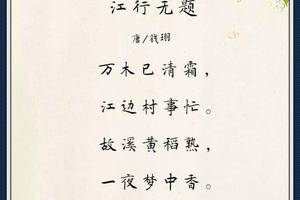 江行无题
唐/钱珝
万木已清霜，
江边村事忙。
故溪黄稻熟，
一夜梦中香。